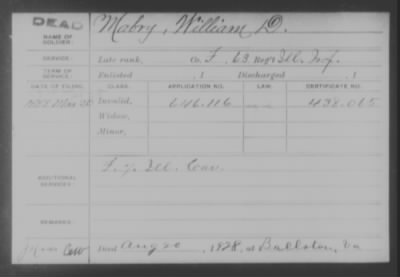 DEAD
NAME OF SOLDIER: Mabry, William D.
SERVICE: Late rank, Co. F, 63 Reg't Ill. Inf.
TERM OF SERVICE: Enlisted , 1 Discharged , 1
DATE OF FILING. CLASS. APPLICATION NO. LAW. CERTIFICATE NO.
1888 Mar Invalid, 646.116 438.065
Widow,
Minor,
ADDITIONAL SERVICES: F. 7 Ill. Cav.
REMARKS:
Died Aug 20, 1928, at Ballston, Va